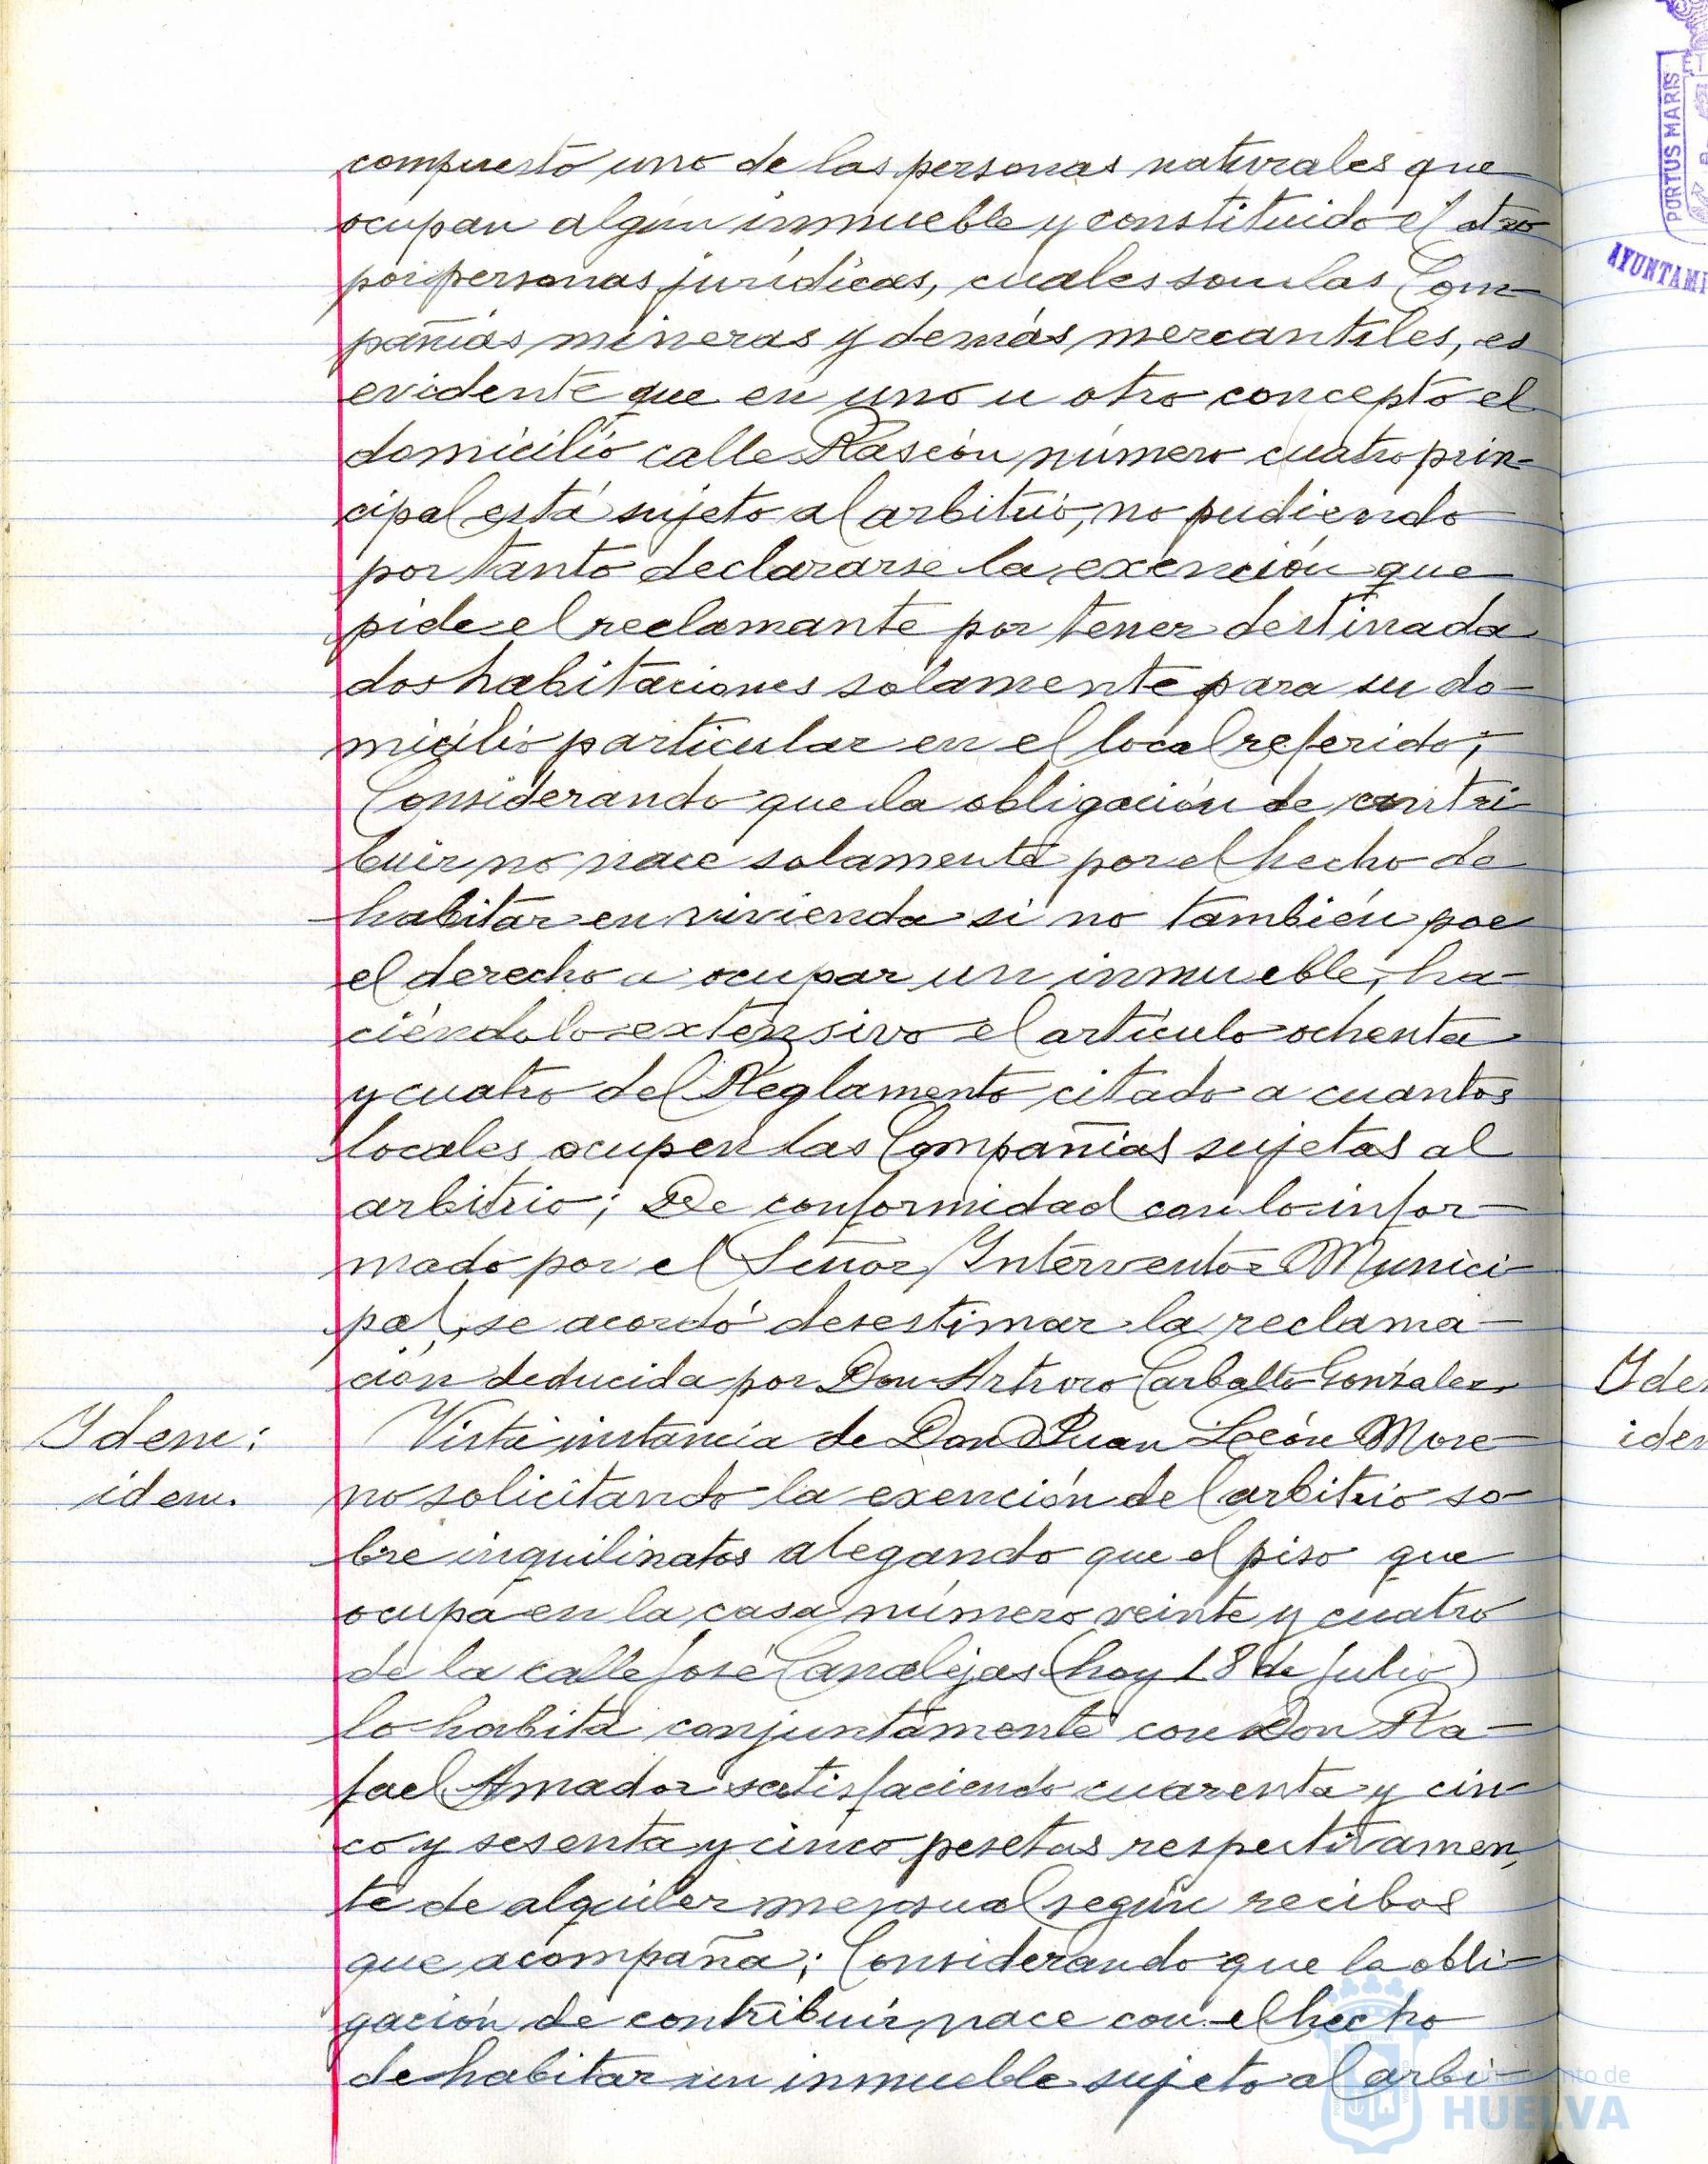 compuesto uno de las personas naturales que
ocupan algún inmueble y constituido el otro
por personas jurídicas, cuales son las Com-
pañias mineras y demás mercantiles, es
evidente que en uno u otro concepto el
domicilio calle Rascón número cuatro prin-
cipal está sujeto al arbitrio, no pudiendo
por tanto declararse la exención que
pide el reclamante por tener destinada
dos habitaciones solamente para su do-
micilio particular en el local referido;
Considerando que la obligación de contri-
buir no nace solamente por el hecho de
habitar en vivienda si no también por
el derecho a ocupar un inmueble, ha-
ciéndolo extensivo el artículo ochenta
y cuatro del Reglamento citado a cuantos
locales ocupen las Compañias sujetas al
arbitrio; De conformidad con lo infor-
mado por el Señor Interventor Munici-
pal, se acordó desestimar la reclama-
ción deducida por Don Arturo Carballo González.
Idem:
idem.
Vista instancia de Don Juan León More-
no solicitando la exención del arbitrio so-
bre inquilinatos alegando que el piso que
ocupa en la casa número veinte y cuatro
de la calle José Canalejas (hoy 18 de Julio)
lo habita conjuntamente con Don Ra-
fael Amador satisfaciendo cuarenta y cin-
co y sesenta y cinco pesetas respectivamen-
te de alquiler mensual según recibos
que acompaña; Considerando que la obli-
gación de contribuir nace con el hecho
de habitar un inmueble sujeto al arbi-
PORTUS MARIS
AYUNTAMI
Idem
idem
HUELVA